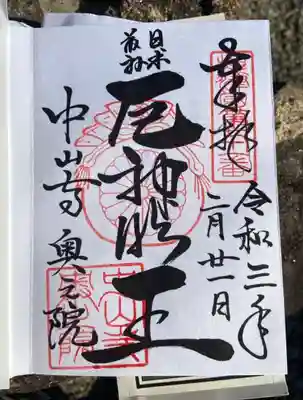 奉拝
令和三年
二月廿一日
日本
最初
厄神明王
中山寺奥之院